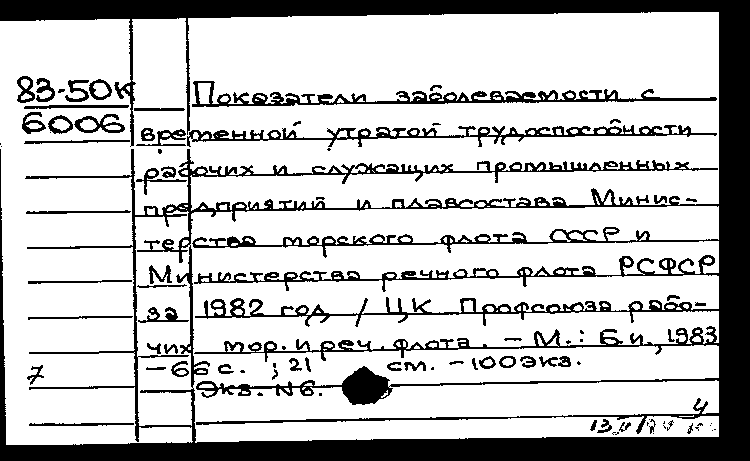 83-50к
6006
Показатели заболеваемости с
временной утратой трудоспособности
рабочих и служащих промышленных
предприятий и плавсостава Минис-
терства морского флота СССР и
Министерства речного флота РСФСР
за 1982 год / ЦК Профсоюза рабо-
чих мор. и реч. флота. - М.: Б.и., 1983
7 - 66 с. ; 21 см. - 100 экз.
Экз. N6.
4
13